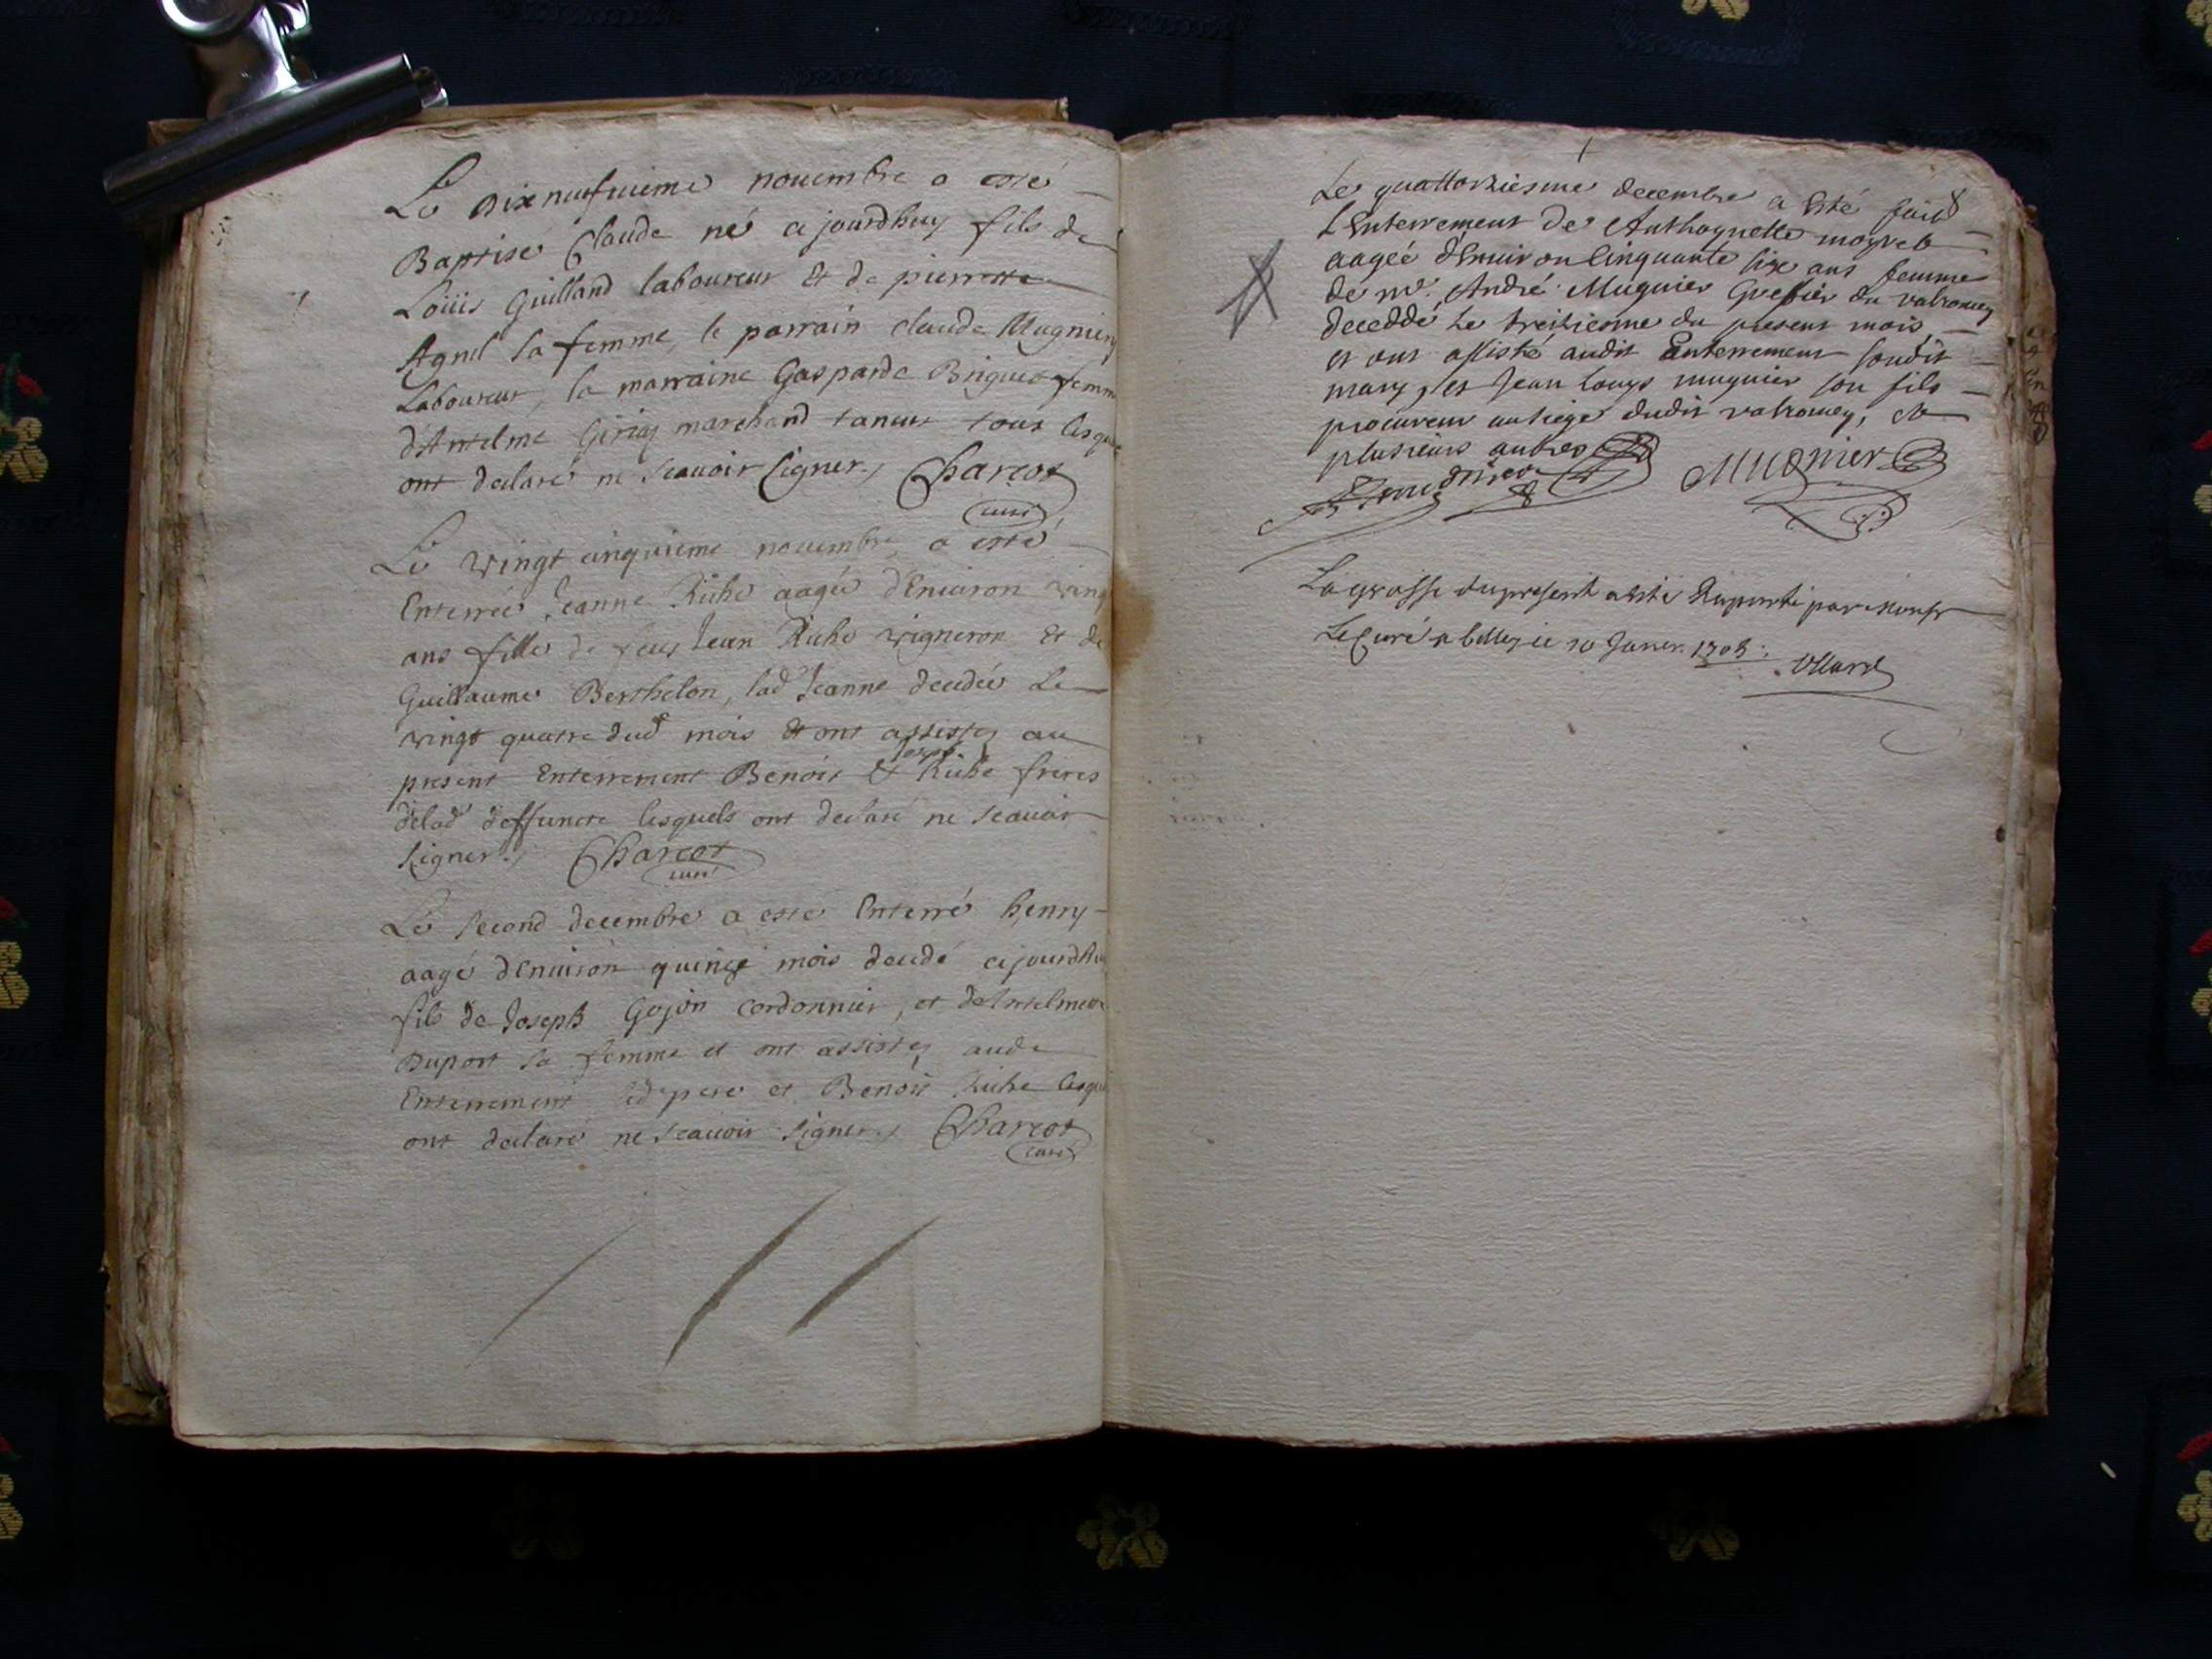 Le Dixneufuieme nouembre a esté
Baptisé Claude né ajourdhuy fils de
Loüis Guilland laboureur Et de pierrette
Agnel sa femme, le parrain claude Mugnier
Laboureur, la marraine Gasparde Briguet femme
d'Antelme Giriaz marchand taneur tous lesque
ont declaré ne scauoir signer./ Charcot
curé
Le vingt cinquieme nouembre a esté
Enterrée Jeanne Riche aagée d'Enuiron ving
ans fille de feus Jean Riche vigneron Et de
Guillaume Berthelon, lad Jeanne decedée Le
vingt quatre dud mois Et ont assistez au
joseph
present Enterrement Benoit & Riche freres
delad deffuncte lesquels ont declaré ne scauoir
signer./ Charcot
curé
Le second decembre a este Enterré henry
aagé d'Enuiron quinze mois decedé ajourdhu
fils de Joseph Gojon cordonnier, et de Antelmette
Duport sa femme et ont assistez aud
Enterrement led pere et Benoit Riche lesque
ont declaré ne scauoir signer./ Charcot
curé
Le quattorziesme decembre a Esté faict
L'Enterrement de Anthoynette
aagée d'Enuiron Cinquante six ans femme
de me. André Mugnier Greffier du valromey
deceddé Le treiziesme du present mois
et ont assisté audit Enterrement soudit
mary, et Jean Louys mugnier son fils
procureur au siege dudit valromey, et
plusieurs autres
Mugnier
La grosse du present a esté Raporté par monsr
Le Curé a belley ce 10 Janvier 1708.